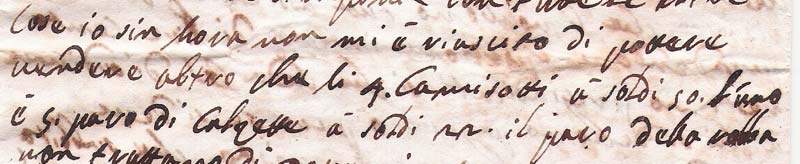 Cose io sin hora non mi è riuscito di pottere
vendere altro che li 4. Camisotti à soldi 50. l'uno
è 5. paro di Calzette à soldi 22. il paro della robba
non